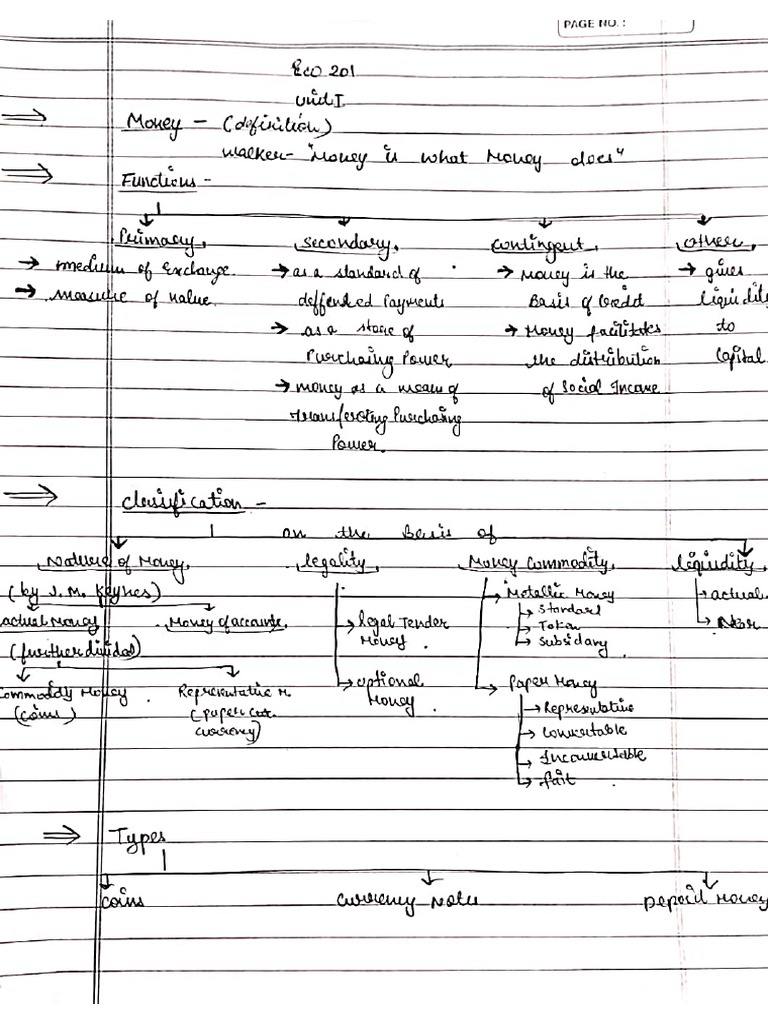 PAGE NO. :
Eco 201
Unit I
Money - (definition)
Walker- "Money is what Money does"
Functions -
Primary, Secondary, Contingent, Other,
→ medium of Exchange. → as a standard of → Money is the → gives
→ measure of value. deffended Payments Basis of Credit liquidity
→ as a store of → Money facilitates to
Purchasing Power the distribution Capital.
→ money as a mean of of Social Income
transferring Purchasing
Power.
Classification -
on the Basis of
Nature of Money, legality, Money Commodity, liquidity,
(by J.M. Keynes) → Metallic Money → actual
actual Money Money of accounts, → legal Tender → Standard → Near
(further divided) Money. → Token
→ Subsidary
Commoddy Money Representative M. → optional → Paper Money
(coins) (paper cut. Money → Representative
currency) → Convertable
→ Inconvertable
→ fait
Types
coins currency Notes Deposit Money